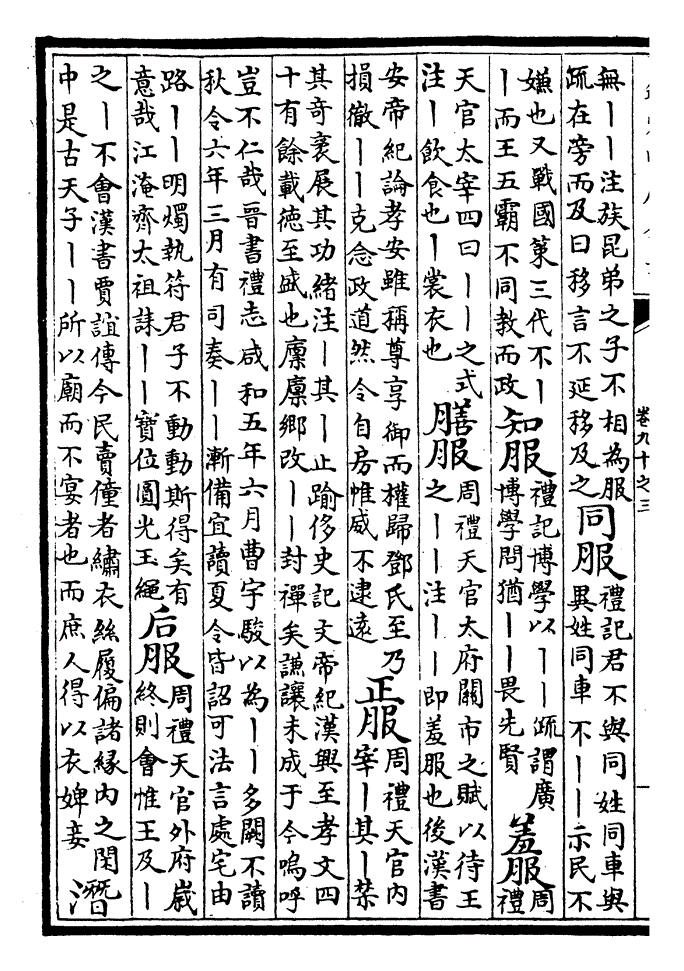 無丨丨注族昆弟之子不相為服
疏在旁而及曰移言不延移及之
同服
禮記君不與同姓同車與
異姓同車不丨丨示民不
嫌也又戰國策三代不丨
丨而王五霸不同教而政
知服
禮記博學以丨丨疏謂廣
博學問猶丨丨畏先賢
羞服
周
禮
天官太宰四曰丨丨之式
注丨飲食也丨裳衣也
膳服
周禮天官太府關市之賦以待王
之丨丨注丨丨即羞服也後漢書
安帝紀論孝安雖稱尊享御而權歸鄧氏至乃
損徹丨丨克念政道然令自房帷威不逮遠
正服
周禮天官內
宰丨其丨禁
其奇衺展其功緒注丨其丨止踰侈史記文帝紀漢興至孝文四
十有餘載徳至盛也廩廩鄉改丨丨封禪矣謙讓未成于今嗚呼
豈不仁哉晉書禮志咸和五年六月曹宇駿以為丨丨多闕不讀
秋令六年三月有司奏丨丨漸備宜讀夏令皆詔可法言處宅由
路丨丨明燭執符君子不動動斯得矣有
意哉江淹齊太祖誄丨丨寶位圓光玉繩
后服
周禮天官外府歲
終則會惟王及丨
之丨不會漢書賈誼傳今民賣僮者繡衣絲履偏諸緣內之閑
中是古天子丨丨所以廟而不宴者也而庶人得以衣婢妾
潛
卷九十之三